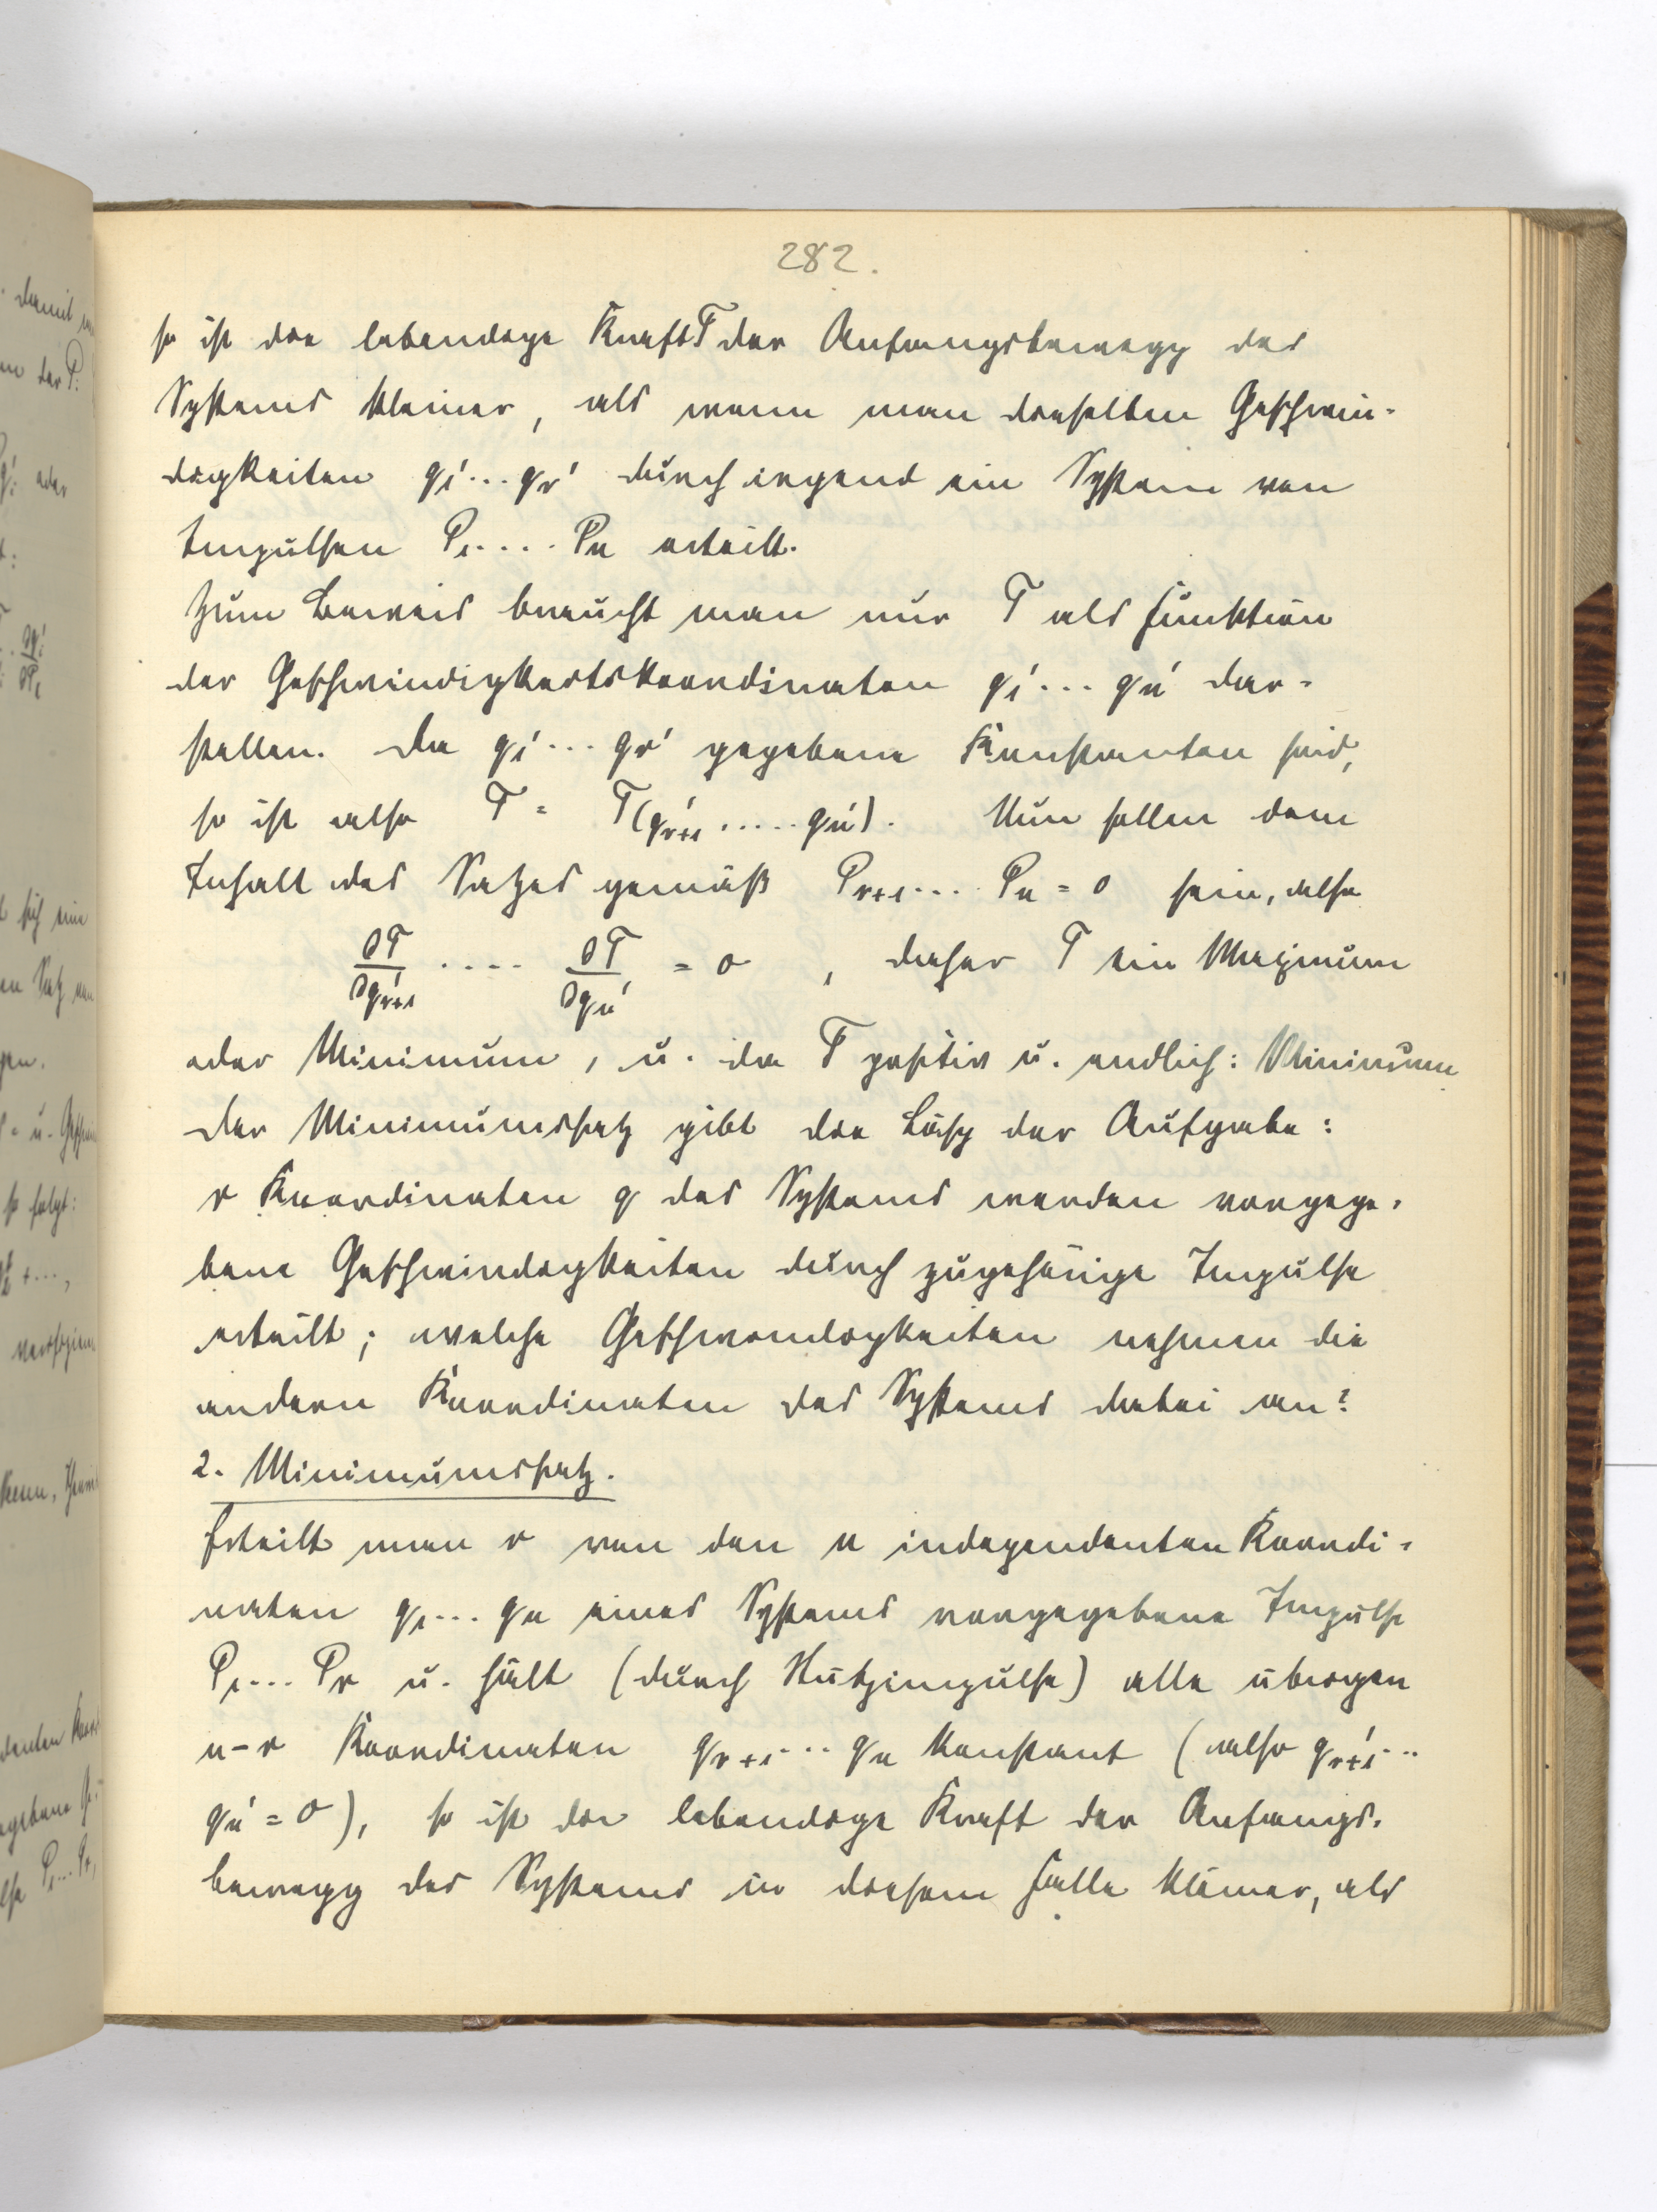 282.
so ist die lebendige Kraft T der Anfangsbewegg des
Systems kleiner, als wenn man dieselben Geschwin-
digkeiten q₁′...qᵣ′ durch irgend ein System von
Impulsen P₁....Pₙ erteilt.
Zum Beweis braucht man nur T als Funktion
der Geschwindigkeitskoordinaten q₁′...qₙ′ dar-
stellen. Da q₁′...qᵣ′ gegebene Konstanten sind,
so ist also T = T(qᵣ₊₁′.....qₙ′). Nun sollen dem
Inhalt des Satzes gemäß Pᵣ₊₁... Pₙ = 0 sein, also
∂T/∂qᵣ₊₁′ .... ∂T/∂qₙ′ = 0 , daher T ein Maximum
oder Minimum, u. da T positiv u. endlich: Minimum
Der Minimumssatz gibt die Lösg der Aufgabe:
r Koordinaten q des Systems werden vorgege-
bene Geschwindigkeiten durch zugehörige Impulse
erteilt; welche Geschwindigkeiten nehmen die
andern Koordinaten des Systems dabei an?
2. Minimumssatz.
Erteilt man r von den n independenten Koordi-
naten q₁...qₙ eines Systems vorgegebene Impulse
P₁...Pᵣ u. hält (durch Stützimpulse) alle übrigen
n-r Koordinaten qᵣ₊₁...qₙ konstant (also qᵣ₊₁′...
qₙ′=0), so ist die lebendige Kraft der Anfangs-
bewegg des Systems in diesem Falle kleiner, als